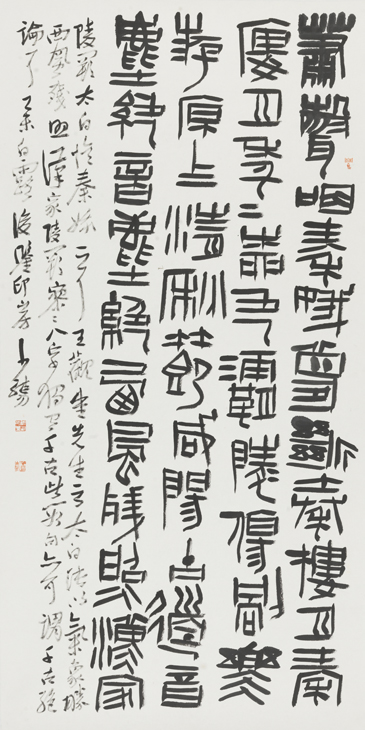 蕭聲咽秦娥夢斷秦樓月秦
樓月年=柳色灞陵傷別樂
遊原上清秋節咸陽古道音
塵絕音塵絕西風殘照漢家
陵闕 太白憶秦娥 王觀堂先生云太白純以氣象勝
西風殘照漢家陵闕寥八字獨有千古此數句亦可謂千古絕
論 白露後